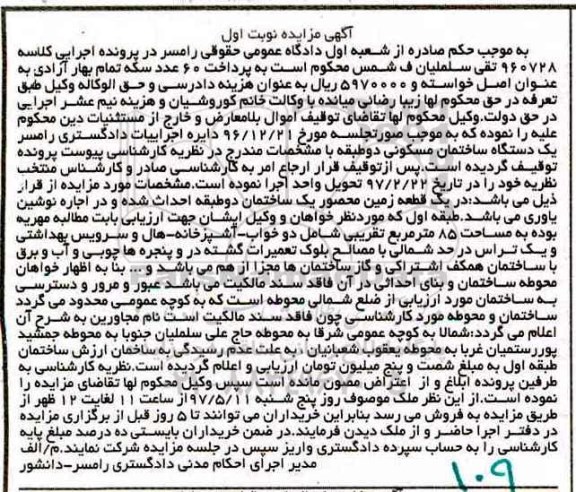 آگهی مزایده نوبت اول
به موجب حکم صادره از شعبه اول دادگاه عمومی حقوقی رامسر در پرونده اجرایی کلاسه
۹۶۰۷۲۸ تقی سلملیان ف شمس محکوم است به پرداخت ۶۰ عدد سکه تمام بهار آزادی به
عنوان اصل خواسته و ۵۹۷۰۰۰۰ ریال به عنوان هزینه دادرسی و حق الوکاله وکیل طبق
تعرفه در حق محکوم لها زیبا رضائی میانده با وکالت خانم کوروشیان و هزینه نیم عشر اجرایی
در حق دولت.وکیل محکوم لها تقاضای توقیف اموال بلامعارض و خارج از مستثنیات دین محکوم
علیه را نموده که به موجب صورتجلسه مورخ ۹۶/۱۲/۲۱ دایره اجراییات دادگستری رامسر
یک دستگاه ساختمان مسکونی دوطبقه با مشخصات مندرج در نظریه کارشناسی پیوست پرونده
توقیف گردیده است.پس ازتوقیف قرار ارجاع امر به کارشناسی صادر و کارشناس منتخب
نظریه خود را در تاریخ ۹۷/۲/۲۲ تحویل واحد اجرا نموده است.مشخصات مورد مزایده از قرار
ذیل می باشد:در یک قطعه زمین محصور یک ساختمان دوطبقه احداث شده و در اجاره نوشین
یاوری می باشد.طبقه اول که موردنظر خواهان و وکیل ایشان جهت ارزیابی بابت مطالبه مهریه
بوده به مساحت ۸۵ مترمربع تقریبی شامل دو خواب-آشپزخانه-هال و سرویس بهداشتی
و یک تراس در حد شمالی با مصالح بلوک تعمیرات گشته در و پنجره ها چوبی و آب و برق
با ساختمان همکف اشتراکی و گاز ساختمان ها مجزا از هم می باشد و ... بنا به اظهار خواهان
محوطه ساختمان و بنای احداثی در آن فاقد سند مالکیت می باشد عبور و مرور و دسترسی
به ساختمان مورد ارزیابی از ضلع شمالی محوطه است که به کوچه عمومی محدود می گردد
ساختمان و محوطه مورد کارشناسی چون فاقد سند مالکیت است نام مجاورین به شرح آن
اعلام می گردد:شمالا به کوچه عمومی شرقا به محوطه حاج علی سلملیان جنوبا به محوطه جمشید
پوررستمیان غربا به محوطه یعقوب شعبانیان . به علت عدم رسیدگی به ساخمان ارزش ساختمان
طبقه اول به مبلغ شصت و پنج میلیون تومان ارزیابی و اعلام گردیده است.نظریه کارشناسی به
طرفین پرونده ابلاغ و از اعتراض مصون مانده است سپس وکیل محکوم لها تقاضای مزایده را
نموده است.از این نظر ملک موصوف روز پنج شنبه ۹۷/۵/۱۱از ساعت ۱۱ لغایت ۱۲ ظهر از
طریق مزایده به فروش می رسد بنابراین خریداران می توانند تا ۵ روز قبل از برگزاری مزایده
در دفتر اجرا حاضر و از ملک دیدن فرمایند.در ضمن خریداران بایستی ده درصد مبلغ پایه
کارشناسی را به حساب سپرده دادگستری واریز سپس در جلسه مزایده شرکت نمایند.م/الف
مدیر اجرای احکام مدنی دادگستری رامسر-دانشور
۱۰۹